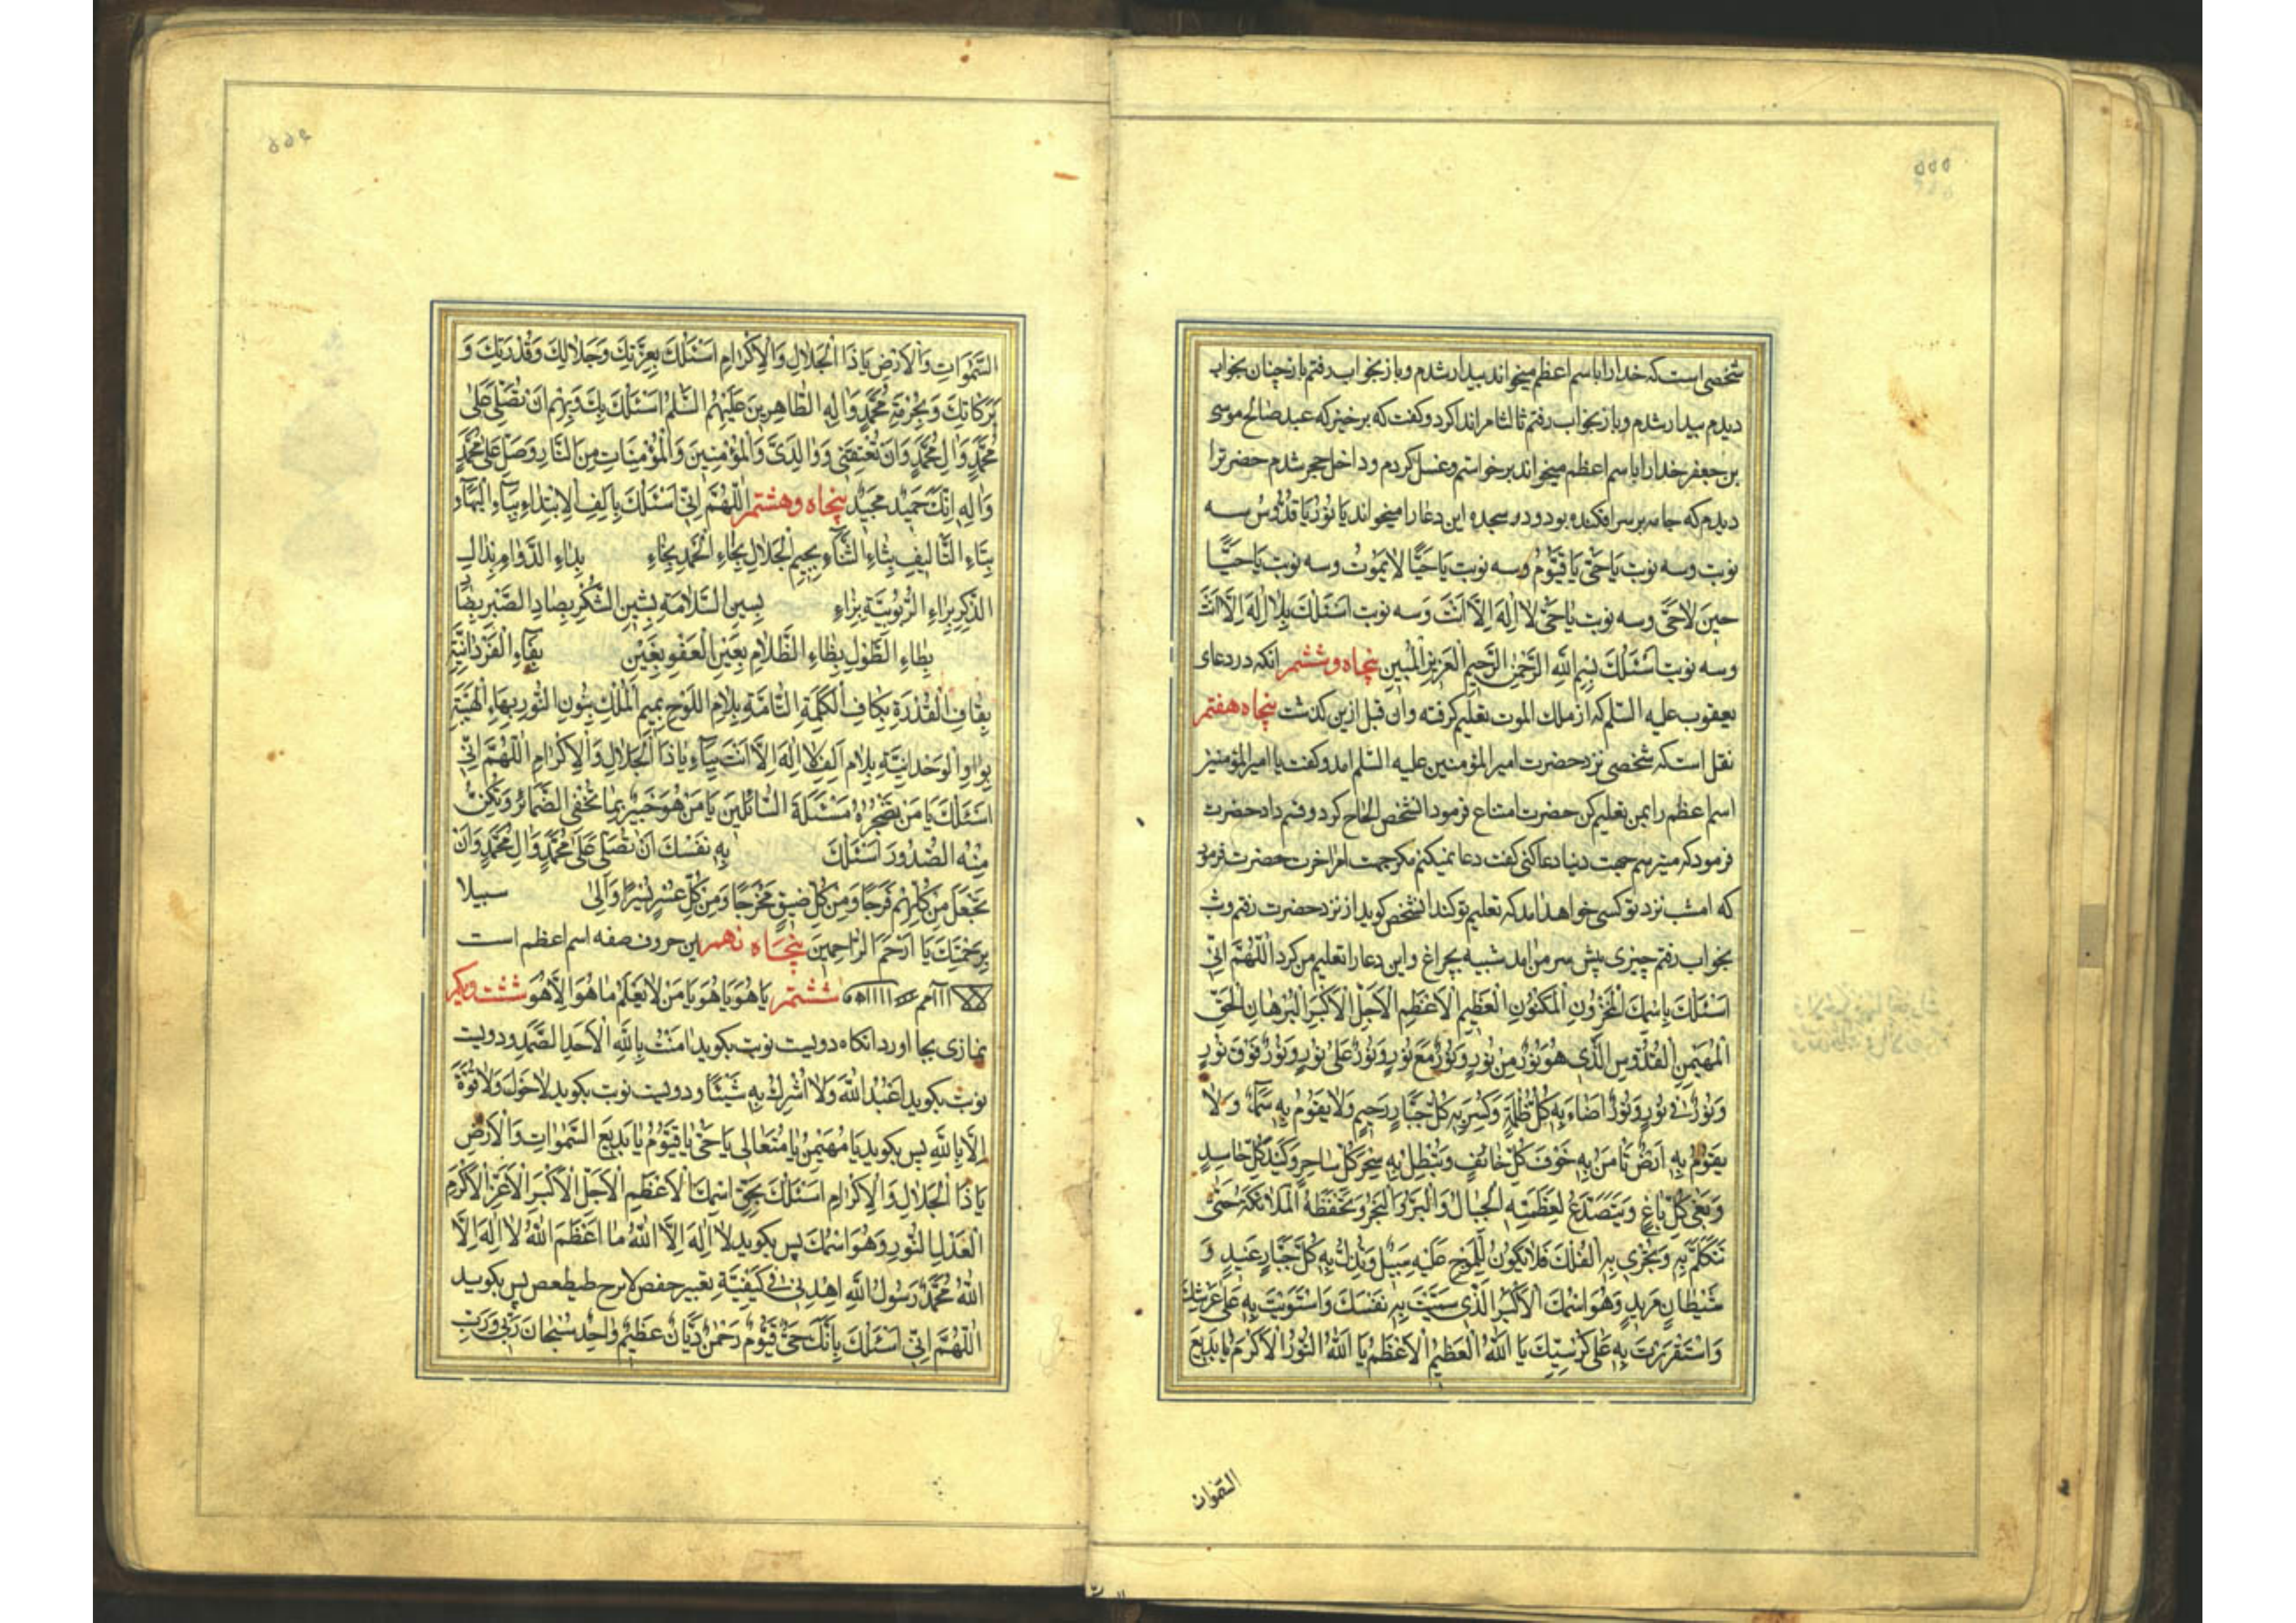 ۵۵۵
شخصی است که خدا را باسم اعظم میخواند بیدار شدم و باز بخواب رفتم باز چنان بخواب
دیدم بیدار شدم و باز بخواب رفتم ثالثا مرا ندا کرد و کفت که برخیز که عبد صالح موسی
بن جعفر خدا را باسم اعظم میخواند برخواستم و غسل کردم و داخل حجر شدم حضرترا
دیدم که جامه بر سر افکنده بود و در سجده این دعا را میخواند یا نُورُ یا قُدُّوسُ سه
نوبت و سه نوبت یا حَیُّ یا قَیُّومُ و سه نوبت یا حَیًّا لا یَمُوتُ و سه نوبت یا حَیًّا
حینَ لا حَیَّ و سه نوبت یا حَیُّ لا اِلٰهَ اِلاّ اَنْتَ و سه نوبت اَسْئَلُكَ بِلا اِلٰهَ اِلاّ اَنْتَ
و سه نوبت اَسْئَلُكَ بِسْمِ اللهِ الرَّحْمٰنِ الرَّحیمِ الْعَزیزِ الْمُبینِ پنجاه و ششم انکه در دعای
یعقوب علیه السّلم که از ملك الموت تعلیم کرفته و ان قبل ازین کذشت پنجاه هفتم
نقل است که شخصی نزد حضرت امیر المؤمنین علیه السّلم امد و کفت یا امیر المؤمنین
اسم اعظم را بمن تعلیم کن حضرت امتناع فرمود انشخص الحاح کرد و قسم داد حضرت
فرمود که میترسم جهت دنیا دعا کنی کفت دعا نمیکنم مکر جهت امر اخرت حضرت فرمود
که امشب نزد تو کسی خواهد امد که تعلیم تو کند انشخص کوید از نزد حضرت رفتم و شب
بخواب رفتم چیزی پیش سر من امد شبیه بچراغ و این دعا را تعلیم من کرد اَللّٰهُمَّ اِنّی
اَسْئَلُكَ بِاسْمِكَ الْمَخْزُونِ الْمَكْنُونِ الْعَظیمِ الْاَعْظَمِ الْاَجَلِّ الْاَكْبَرِ الْبُرْهانِ الْحَقِّ
الْمُهَیْمِنِ الْقُدُّوسِ الَّذی هُوَ نُورٌ مِنْ نُورٍ وَ نُورٌ مَعَ نُورٍ وَ نُورٌ عَلٰی نُورٍ وَ نُورٌ فَوْقَ نُورٍ
وَ نُورٌ فی نُورٍ وَ نُورٌ اَضاءَ بِهِ كُلُّ ظُلْمَةٍ وَ كُسِرَ بِهِ كُلُّ جَبّارٍ رَجیمٍ وَ لا یَقُومُ بِهِ سَمآءٌ وَ لا
یَقُومُ بِهِ اَرْضٌ یَأْمَنُ بِهِ خَوْفُ كُلِّ خائِفٍ وَ یَبْطُلُ بِهِ سِحْرُ كُلِّ ساحِرٍ وَ كَیْدُ كُلِّ حاسِدٍ
وَ بَغْیُ كُلِّ باغٍ وَ یَتَصَدَّعُ لِعَظَمَتِهِ الْجِبالُ وَ الْبَرُّ وَ الْبَحْرُ وَ تَحْفَظُهُ الْمَلائِكَةُ حَتّٰی
تَتَكَلَّمَ بِهِ وَ تَجْری بِهِ الْفُلْكُ فَلا یَكُونُ لِلْمَوْجِ عَلَیْهِ سَبیلٌ وَ یَذِلُّ بِهِ كُلُّ جَبّارٍ عَنیدٍ وَ
شَیْطانٍ مَریدٍ وَ هُوَ اسْمُكَ الْاَكْبَرُ الَّذی سَمَّیْتَ بِهِ نَفْسَكَ وَ اسْتَوَیْتَ بِهِ عَلٰی عَرْشِكَ
وَ اسْتَقْرَرْتَ بِهِ عَلٰی كُرْسِیِّكَ یا اَللهُ الْعَظیمُ الْاَعْظَمُ یا اَللهُ النُّورُ الْاَكْرَمُ یا بَدیعَ
السّموات
السَّمٰواتِ وَ الْاَرْضِ یا ذَا الْجَلالِ وَ الْاِكْرامِ اَسْئَلُكَ بِعِزَّتِكَ وَ جَلالِكَ وَ قُدْرَتِكَ وَ
بَرَكاتِكَ وَ بِحُرْمَةِ مُحَمَّدٍ وَ الِهِ الطّاهِرینَ عَلَیْهِمُ السَّلٰمُ اَسْئَلُكَ بِكَ وَ بِهِمْ اَنْ تُصَلِّیَ عَلٰی
مُحَمَّدٍ وَ الِ مُحَمَّدٍ وَ اَنْ تُعْتِقَنی وَ والِدَیَّ وَ الْمُؤْمِنینَ وَ الْمُؤْمِناتِ مِنَ النّارِ وَ صَلِّ عَلٰی مُحَمَّدٍ
وَ الِهِ اِنَّكَ حَمیدٌ مَجیدٌ پنجاه و هشتم اَللّٰهُمَّ اِنّی اَسْئَلُكَ بِاَلِفِ الْاِبْتِداءِ بِبآءِ الْبَهآءِ
بِتاءِ التَّألیفِ بِثاءِ الثَّنآءِ بِجیمِ الْجَلالِ بِحاءِ الْحَمْدِ بِخاءِ بِدالِ الدَّوامِ بِذالِ
الذِّكْرِ بِراءِ الرُّبُوبِیَّةِ بِزاءِ بِسینِ السَّلامَةِ بِشینِ الشُّكْرِ بِصادِ الصَّبْرِ بِضادِ
بِطاءِ الطَّوْلِ بِظاءِ الظَّلامِ بِعَیْنِ الْعَفْوِ بِغَیْنِ بِفآءِ الْفَرْدانِیَّةِ
بِقافِ الْقُدْرَةِ بِكافِ الْكَلِمَةِ التّامَّةِ بِلامِ اللَّوْحِ بِمیمِ الْمُلْكِ بِنُونِ النُّورِ بِهاءِ الْهَیْبَةِ
بِواوِ الْوَحْدانِیَّةِ بِلامِ اَلِفِ لا اِلٰهَ اِلاّ اَنْتَ بِیآءِ یا ذَا الْجَلالِ وَ الْاِكْرامِ اَللّٰهُمَّ اِنّی
اَسْئَلُكَ یا مَنْ تُضْجِرُهُ مَسْئَلَةُ السّائِلینَ یا مَنْ هُوَ خَبیرٌ بِما تُخْفِی الضَّمائِرُ وَ تُكِنُّ
مِنْهُ الصُّدُورُ اَسْئَلُكَ بِهِ نَفْسَكَ اَنْ تُصَلِّیَ عَلٰی مُحَمَّدٍ وَ الِ مُحَمَّدٍ وَ اَنْ
تَجْعَلَ مِنْ كُلِّ هَمٍّ فَرَجًا وَ مِنْ كُلِّ ضیقٍ مَخْرَجًا وَ مِنْ كُلِّ عُسْرٍ یُسْرًا وَ اِلٰی سبیلا
بِرَحْمَتِكَ یا اَرْحَمَ الرّاحِمینَ پنجاه نهم این حروف صفه اسم اعظم است
ششتم یا هُوَ یا هُوَ یا مَنْ لا یَعْلَمُ ما هُوَ اِلاّ هُوَ ششت و یکم
نمازی بجا اورد انکاه دویست نوبت بکوید امَنْتُ بِاللهِ الْاَحَدِ الصَّمَدِ و دویست
نوبت بکوید اَعْبُدُ اللهَ وَ لا اُشْرِكُ بِهِ شَیْئًا و دویست نوبت بکوید لا حَوْلَ وَ لا قُوَّةَ
اِلاّ بِاللهِ پس بکوید یا مُهَیْمِنُ یا مُتَعالی یا حَیُّ یا قَیُّومُ یا بَدیعَ السَّمٰواتِ وَ الْاَرْضِ
یا ذَا الْجَلالِ وَ الْاِكْرامِ اَسْئَلُكَ بِحَقِّ اسْمِكَ الْاَعْظَمِ الْاَجَلِّ الْاَكْبَرِ الْاَعَزِّ الْاَكْرَمِ
الْعَدْلِ النُّورِ وَ هُوَ اسْمُكَ پس بکوید لا اِلٰهَ اِلاَّ اللهُ ما اَعْظَمَ اللهُ لا اِلٰهَ اِلاَّ
اللهُ مُحَمَّدٌ رَسُولُ اللهِ اِهْدِنی فی كَیْفِیَّةِ تعبیر پس بکوید
اَللّٰهُمَّ اِنّی اَسْئَلُكَ بِاَنَّكَ حَیٌّ قَیُّومٌ رَحْمٰنٌ دَیّانٌ عَظیمٌ واحِدٌ سُبْحانَ رَبّی وَ رَبِّ